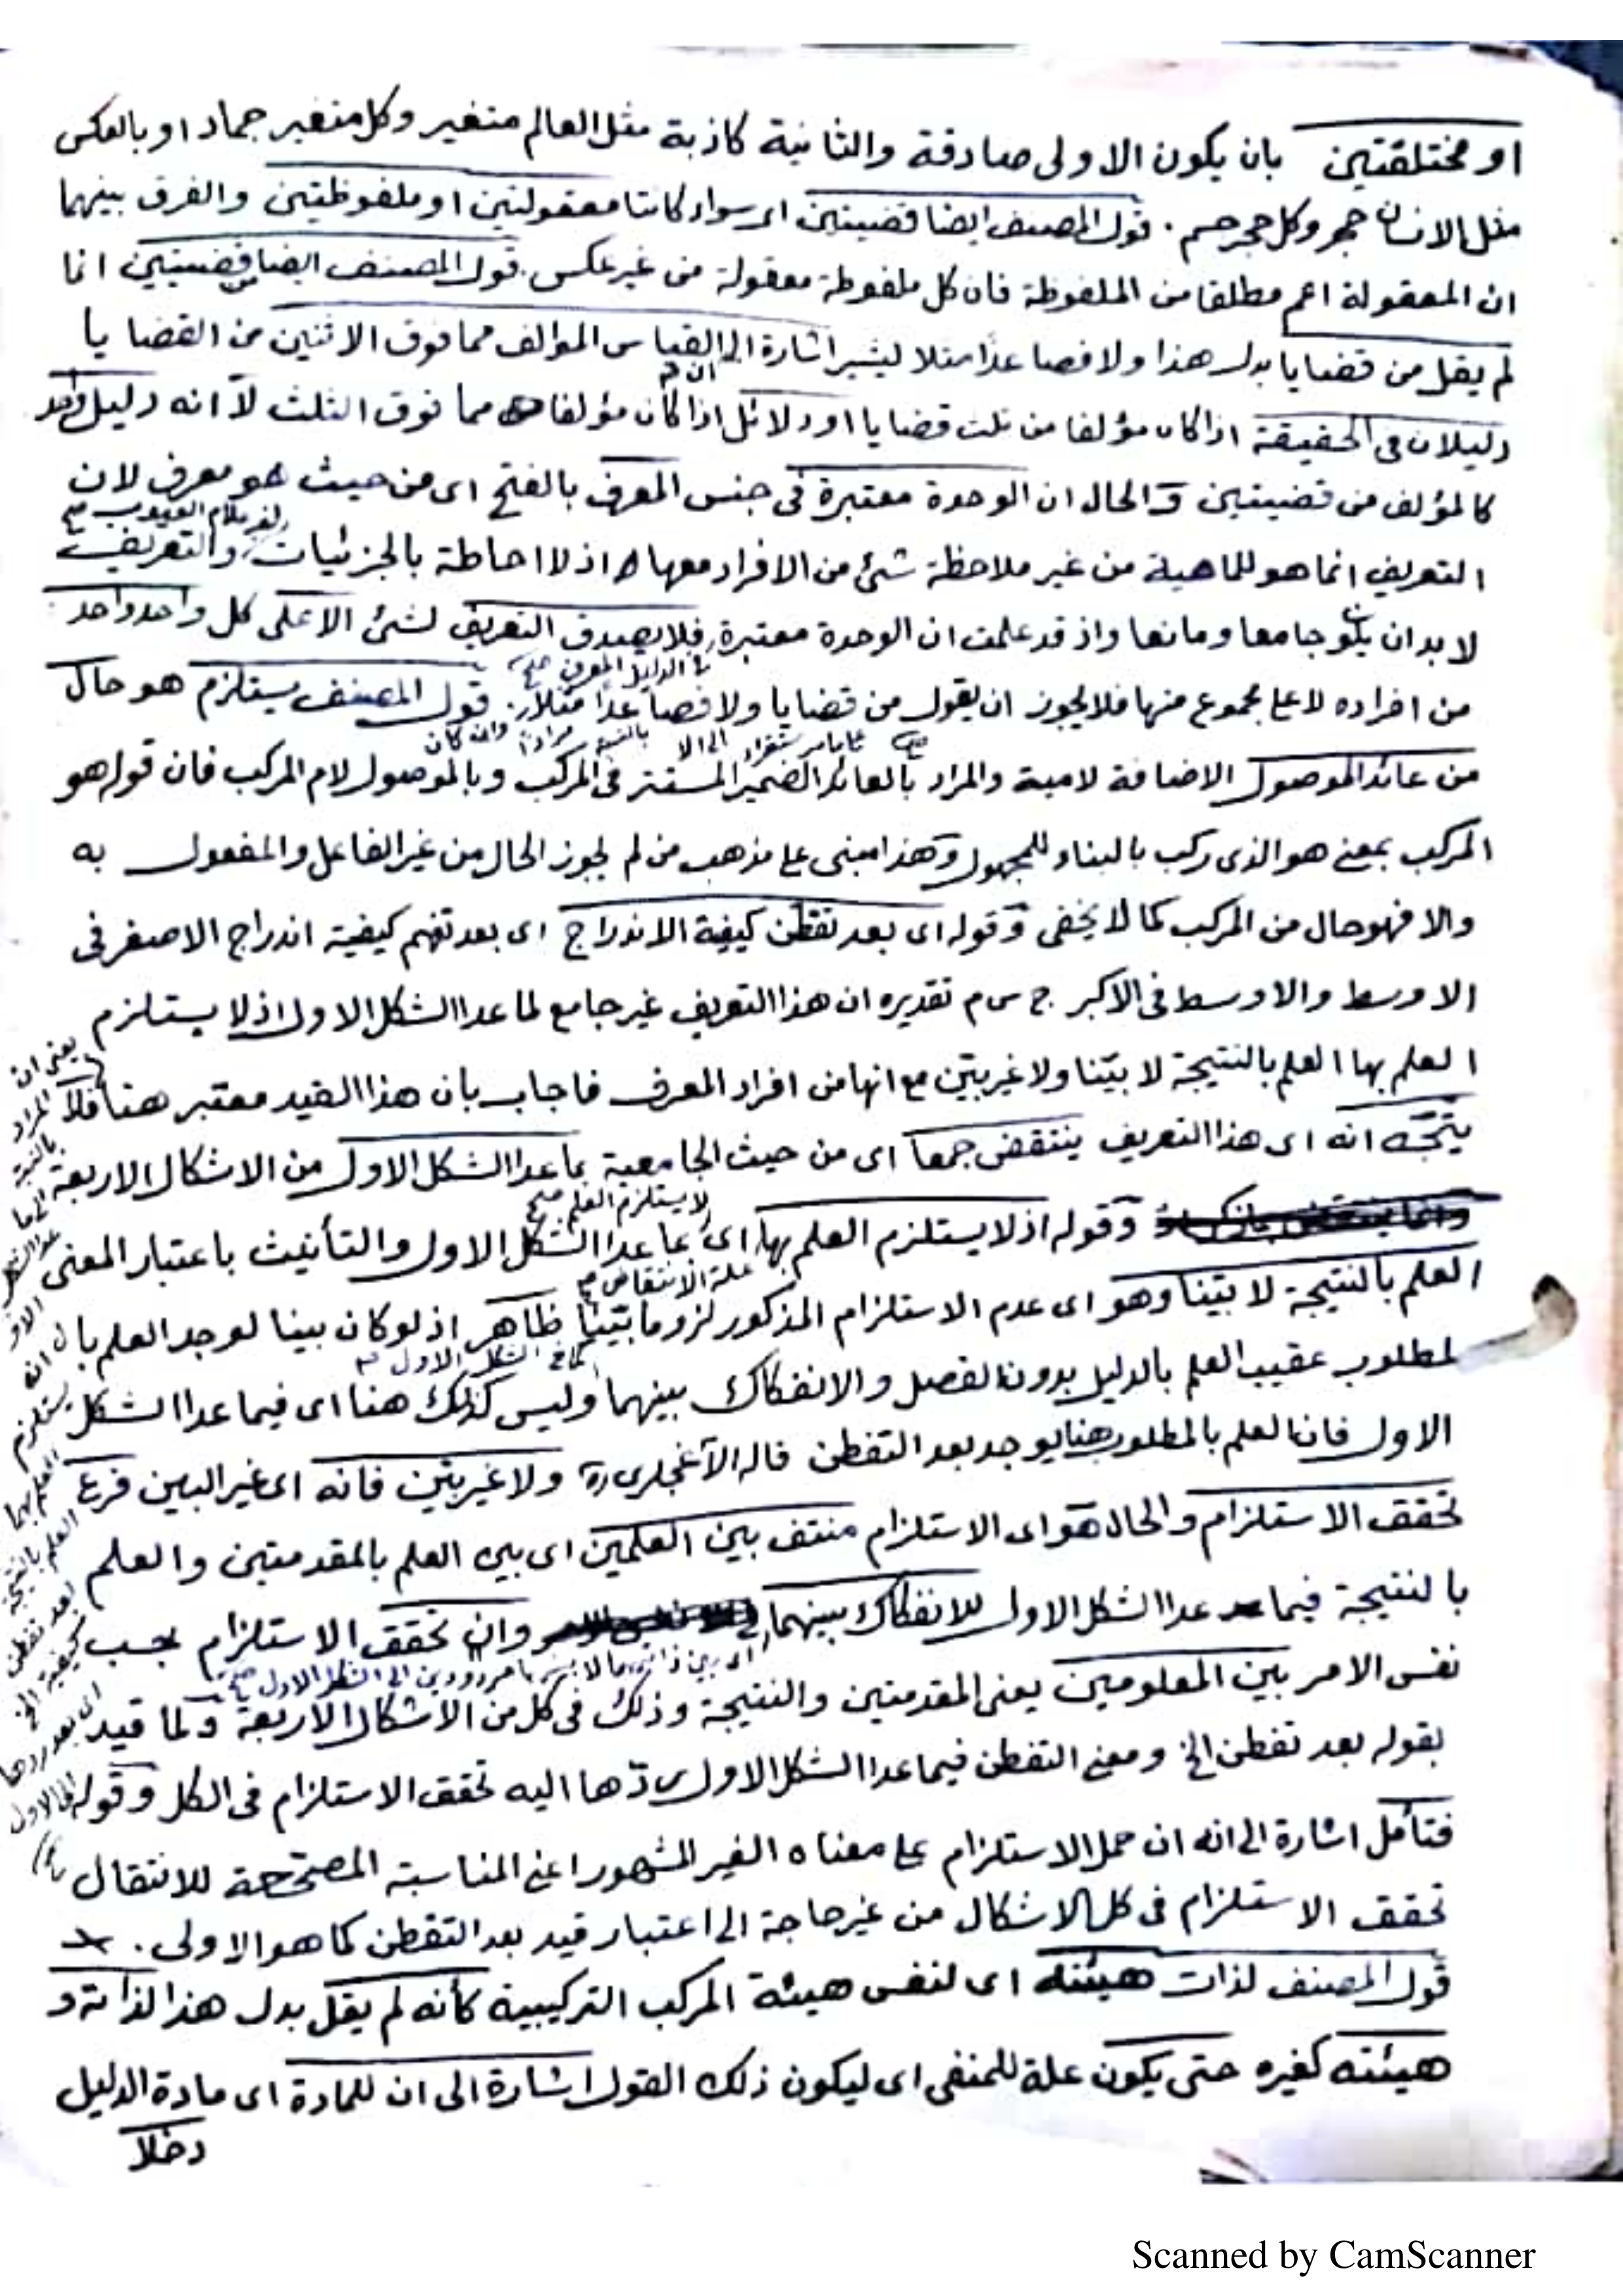 او مختلقتين بان يكون الاولى صادقة والثانية كاذبة مثل العالم متغير وكل متغير جماد او بالعكس
مثل الانسان حجر وكل حجر جسم . قول المصنف ايضا قضيتين اى سواء كانتا معقولتين او ملفوظتين والفرق بينهما
ان المعقولة اعم مطلقا من الملفوظة فان كل ملفوظة معقولة من غير عكس . قول المصنف ايضا من قضيتين انما
لم يقل من قضايا بدل هذا ولا فصاعدًا مثلا ليشير اشارة الى ان القياس المؤالف مما فوق الاثنين من القضايا
دليلان فى الحقيقة اذا كان مؤلفا من ثلث قضايا او دلائل اذا كان مؤلفا مما فوق الثلث لا انه دليل واحد
كالمؤلف من قضيتين والحال ان الوحدة معتبرة فى جنس المعرف بالفتح اى من حيث هو معرف لان
التعريف انما هو للماهية من غير ملاحظة شئ من الافراد معها اذ لا احاطة بالجزئيات لغير علام الغيوب صح والتعريف
لا بد ان يكون جامعا ومانعا واذ قد علمت ان الوحدة معتبرة فلا يصدق التعريف لشئ الا على كل واحد واحد
من افراده لا على مجموع منها فلا يجوز ان يقول من قضايا ولا فصاعدًا مثلا . قول المصنف يستلزم هو حال
من عائد الموصول الاضافة لامية والمراد بالعائد الضمير المستتر فى المركب وبالموصول لام المركب فان قوله هو
المركب بمعنى هو الذى ركب بالبناء للمجهول وهذا مبنى على مذهب من لم يجوز الحال من غير الفاعل والمفعول به
والا فهو حال من المركب كما لا يخفى وقوله اى بعد تفطن كيفية الاندراج اى بعد تفهم كيفية اندراج الاصغر فى
الاوسط والاوسط فى الاكبر ج س م تقديره ان هذا التعريف غير جامع لما عدا الشكل الاول اذ لا يستلزم
العلم بها العلم بالنتيجة لا بيّنا ولا غير بيّن مع انها من افراد المعرف فاجاب بان هذا القيد معتبر هنا فلا
يتجه انه اى هذا التعريف ينتقض جمعا اى من حيث الجامعية بما عدا الشكل الاول من الاشكال الاربعة
وقوله اذ لا يستلزم العلم بها اى بما عدا الشكل الاول والتأنيث باعتبار المعنى
لا يستلزم العلم صح
العلم بالنتيجة لا بيّنا وهو اى عدم الاستلزام المذكور لزوما بيّنًا ظاهر اذ لو كان بينا لوجد العلم بال
علة الانتقاض
لمطلوب عقيب العلم بالدليل بدون الفصل والانفكاك بينهما وليس كذلك هنا اى فيما عدا الشكل
كما فى الشكل الاول
الاول فان العلم بالمطلوب هنا يوجد بعد التفطن قاله الآغجلرى ره ولا غير بيّن فانه اى غير البين فرع
تحقق الاستلزام والحال هو اى الاستلزام منتف بين العلمين اى بين العلم بالمقدمتين والعلم
بالنتيجة فيما عدا الشكل الاول للانفكاك بينهما وان تحقق الاستلزام بحسب
نفس الامر بين المعلومين يعنى المقدمتين والنتيجة وذلك فى كل من الاشكال الاربعة ولما قيد
بقوله بعد تفطن الخ ومعنى التفطن فيما عدا الشكل الاول ردّها اليه تحقق الاستلزام فى الكل وقوله
فتأمل اشارة الى انه ان حمل الاستلزام على معناه الغير المشهور اعنى المناسبة المصححة للانتقال
تحقق الاستلزام فى كل الاشكال من غير حاجة الى اعتبار قيد بعد التفطن كما هو الاولى .
قول المصنف لذات هيئته اى لنفس هيئة المركب التركيبية كأنه لم يقل بدل هذا لذاته و
هيئته كغيره حتى يكون علة للمنفى اى ليكون ذلك القول اشارة الى ان للمادة اى مادة الدليل
دخلا
يعنى ان
المراد
بالنسبة
الى ما
عدا الشكل
الاو
ل انه
يستلزم
العلم بها
العلم بالنتيجة
بعد تفطن
كيفية الخ
اى بعد ردها
الى الاول
Scanned by CamScanner